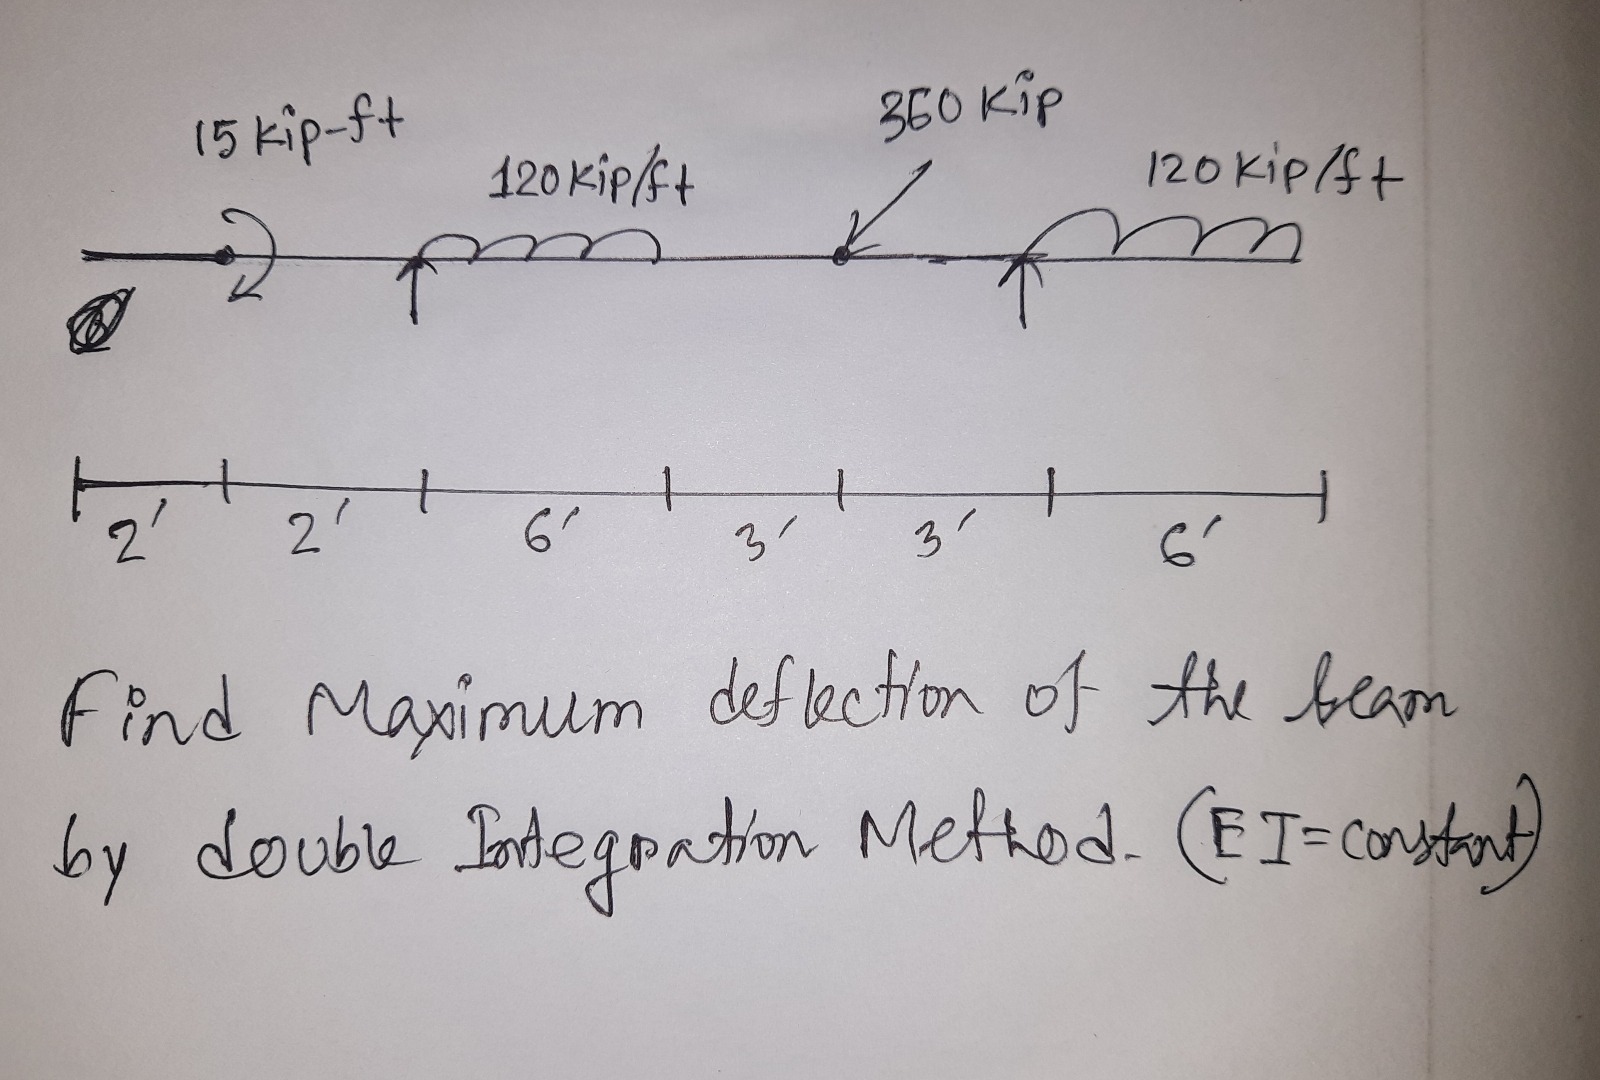 15 kip-ft
120 Kip/ft
360 Kip
120 Kip/ft
2' 2' 6' 3' 3' 6'
Find Maximum deflection of the beam
by double Integration Method. (EI=constant)